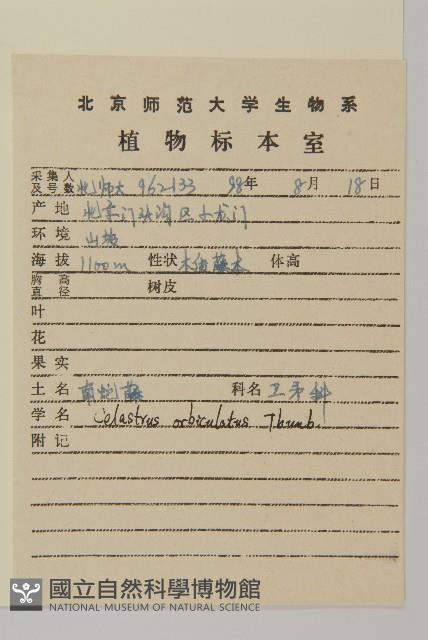 北京师范大学生物系
植物标本室
采集人及号数 北师大 962133 98年 8月 18日
产地 北京门头沟区小龙门
环境 山坡
海拔 1100m 性状 木质藤本 体高
胸高直径 树皮
叶
花
果实
土名 南蛇藤 科名 卫矛科
学名 Celastrus orbiculatus Thunb.
附记
國立自然科學博物館
NATIONAL MUSEUM OF NATURAL SCIENCE